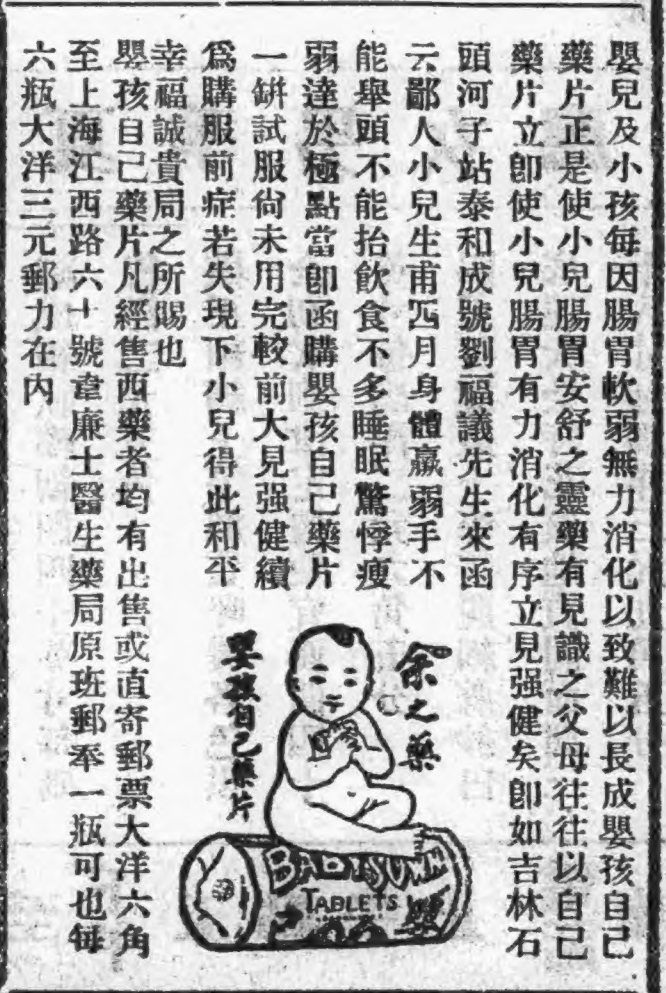 嬰兒及小孩每因腸胃軟弱無力消化以致難以長成嬰孩自己
藥片正是使小兒腸胃安舒之靈藥有見識之父母往往以自己
藥片立卽使小兒腸胃有力消化有序立見强健矣卽如吉林石
頭河子站泰和成號劉福議先生來函
云鄙人小兒生甫四月身體羸弱手不
能舉頭不能抬飲食不多睡眠驚悸瘦
弱達於極點當卽函購嬰孩自己藥片
一缾試服尙未用完較前大見强健續
爲購服前症若失現下小兒得此和平
幸福誠貴局之所賜也
嬰孩自己藥片凡經售西藥者均有出售或直寄郵票大洋六角
至上海江西路六十號韋廉士醫生藥局原班郵奉一瓶可也每
六瓶大洋三元郵力在內
余之藥
嬰孩自己藥片
BABY'S OWN
TABLETS